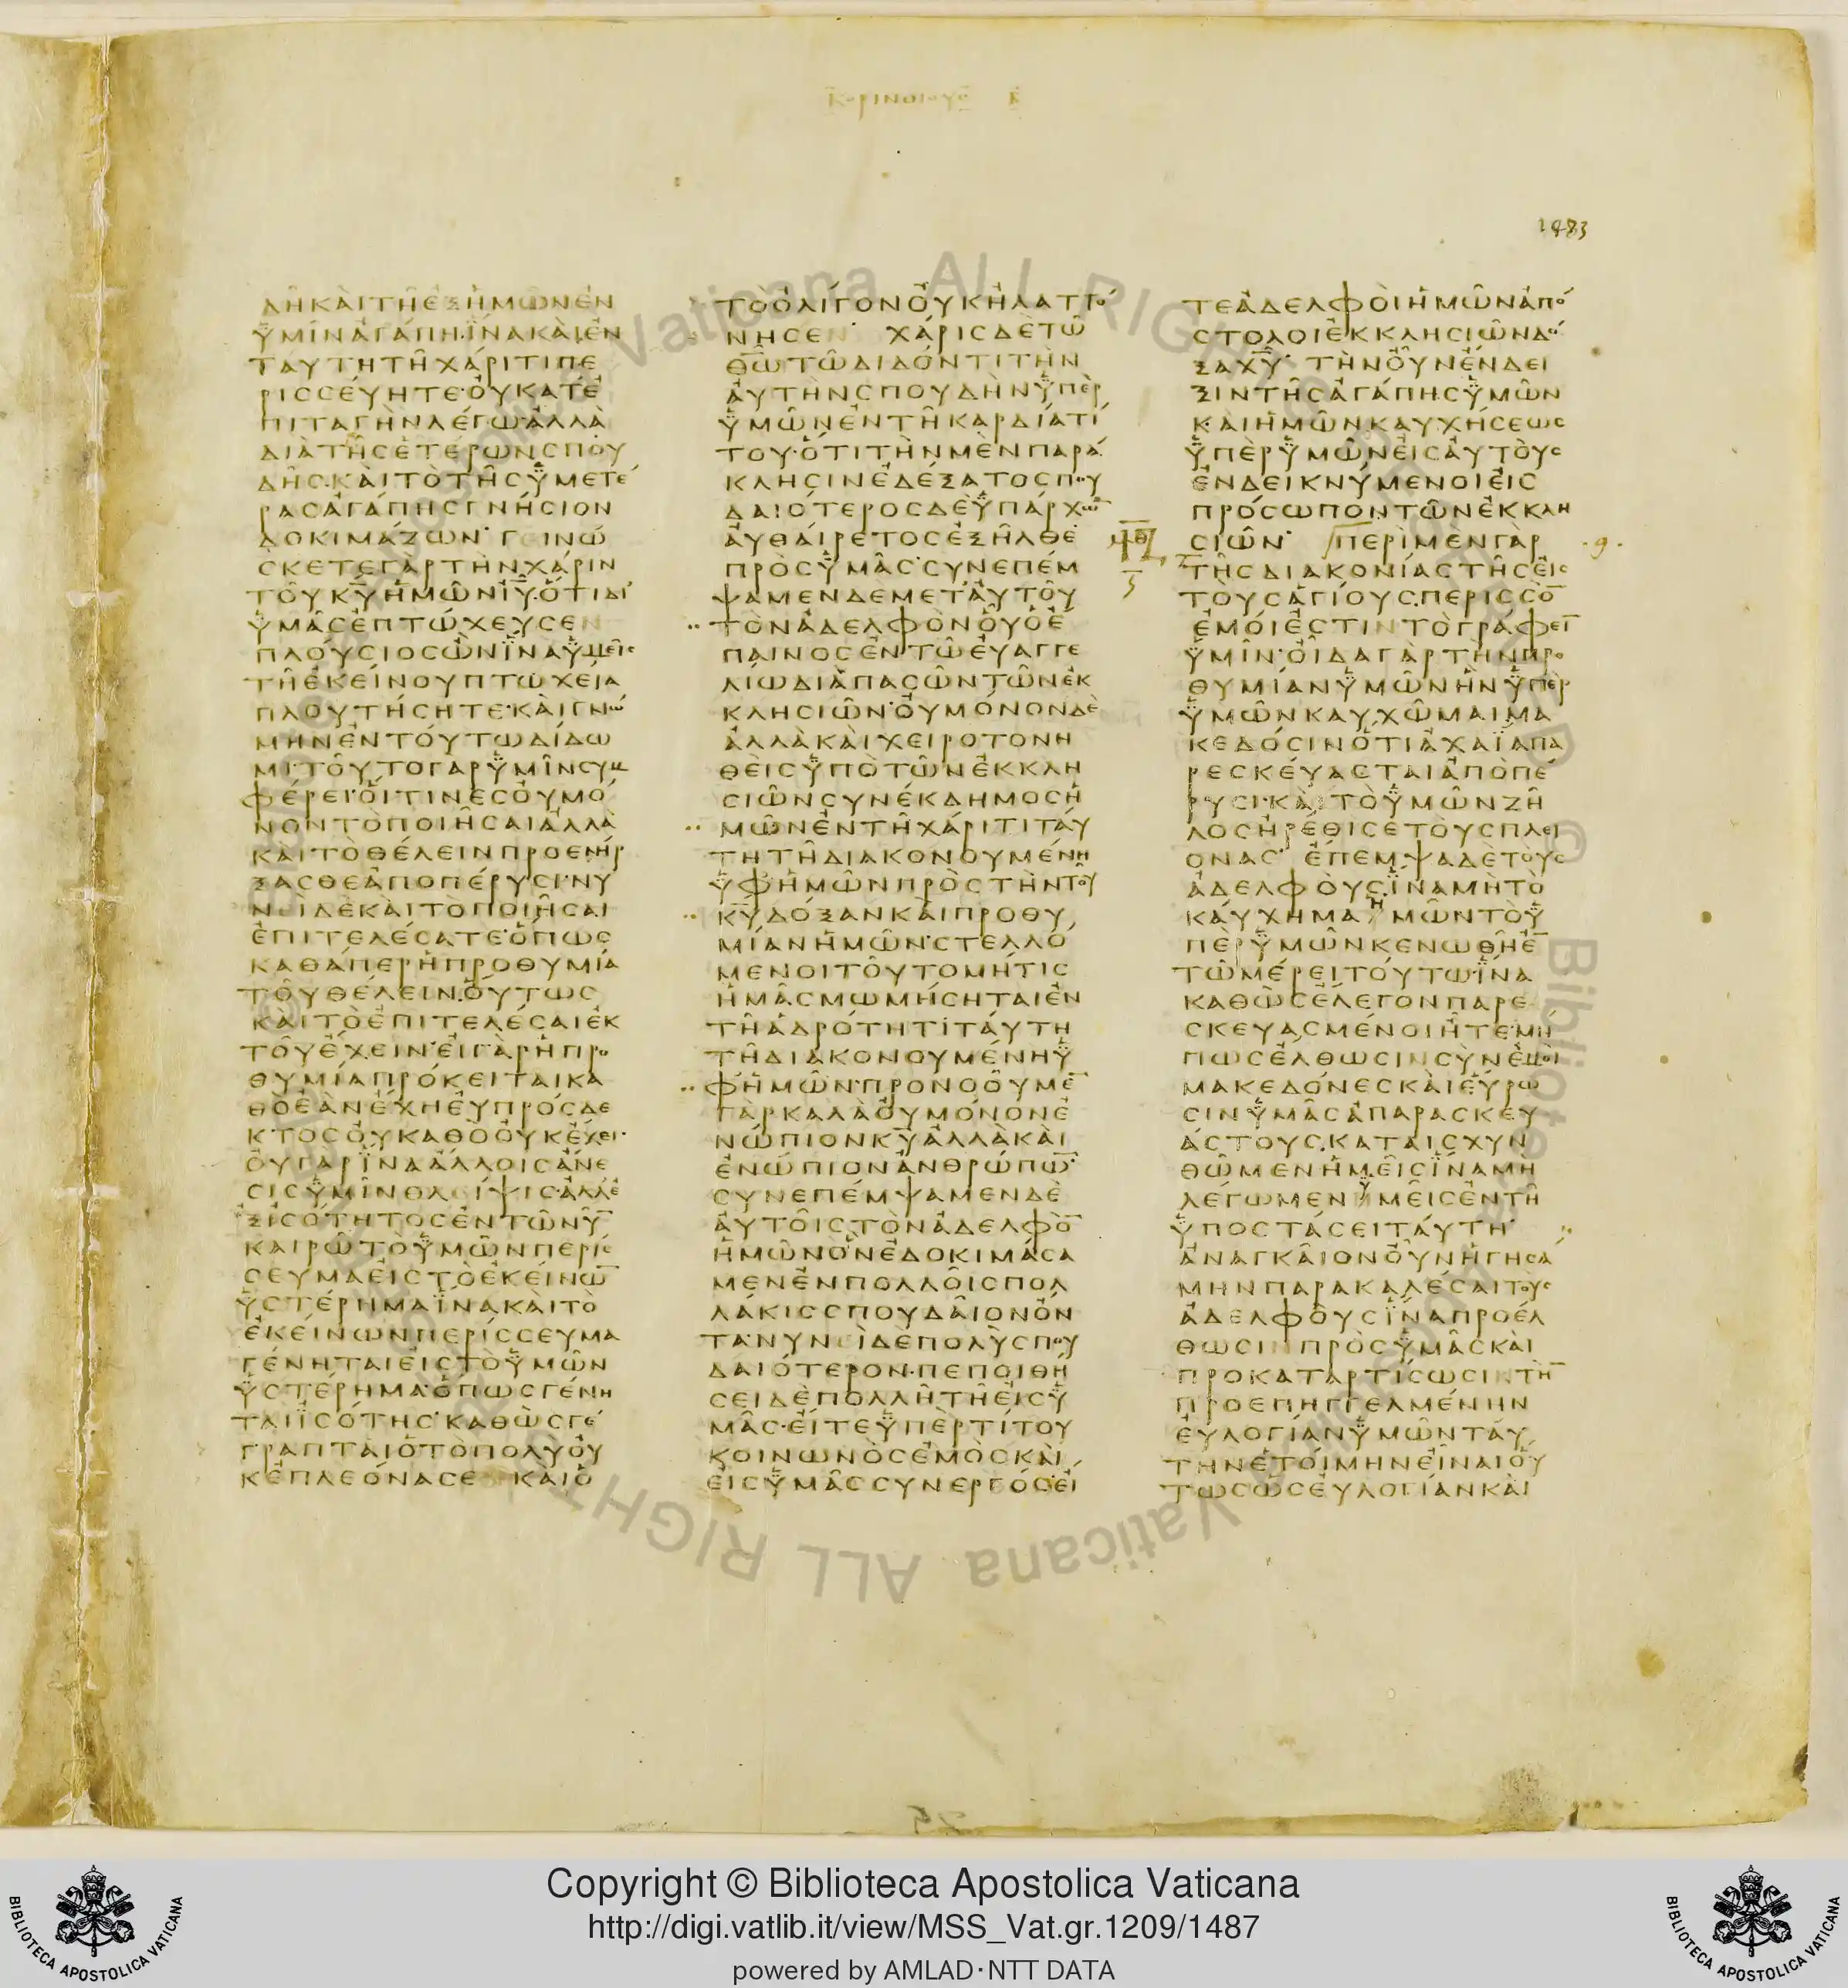 ΚΟΡΙΝΘΙΟΥϹ Β
1483
ΛΗ͂ΚΑῚΤΗ͂ἘΞἩΜΩ͂ΝἘΝ
ΫΜΙ͂ΝἈΓΆΠΗ·ΪΝΑΚΑῚἘΝ
ΤΑΎΤΗΤΗ͂ΧΆΡΙΤΙΠΕ
ΡΙϹϹΕΎΗΤΕ·ΟΥ̓ΚΑΤἘ
ΠΙΤΑΓῊΝΛΈΓΩ·ἈΛΛᾺ
ΔΙᾺΤΗ͂ϹἙΤΈΡΩΝϹΠΟΥ
ΔΗ͂Ϲ·ΚΑῚΤῸΤΗ͂ϹΫΜΕΤΈ
ΡΑϹἈΓΆΠΗϹΓΝΉϹΙΟΝ
ΔΟΚΙΜΆΖΩΝ· ΓΕΙΝΏ
ϹΚΕΤΕΓᾺΡΤῊΝΧΆΡΙΝ
ΤΟΥ͂Κ̅Υ̅ἩΜΩ͂ΝΙ̅Υ̅·ὍΤΙΔΙ
ΫΜΑ͂ϹἘΠΤΏΧΕΥϹΕΝ
ΠΛΟΎϹΙΟϹὪΝΪΝΑΫΜΕΙ͂Ϲ
ΤΗ͂ἘΚΕΊΝΟΥΠΤΩΧΕΊΑ
ΠΛΟΥΤΉϹΗΤΕ·ΚΑῚΓΝΏ
ΜΗΝἘΝΤΟΎΤΩΔΊΔΩ
ΜΙ·ΤΟΥ͂ΤΟΓᾺΡΫΜΙ͂ΝϹΥΜ
ΦΈΡΕΙ·ΟἽΤΙΝΕϹΟΥ̓ΜΌ
ΝΟΝΤῸΠΟΙΗ͂ϹΑΙἈΛΛᾺ
ΚΑῚΤῸΘΈΛΕΙΝΠΡΟΕΝΉΡ
ΞΑϹΘΕἈΠΟΠΈΡΥϹΙ·ΝΥ
ΝΕῚΔῈΚΑῚΤῸΠΟΙΗ͂ϹΑΙ
ἘΠΙΤΕΛΈϹΑΤΕ·ὍΠΩϹ
ΚΑΘΆΠΕΡἩΠΡΟΘΥΜΊΑ
ΤΟΥ͂ΘΈΛΕΙΝ·ΟὝΤΩϹ
ΚΑῚΤῸἘΠΙΤΕΛΈϹΑΙἘΚ
ΤΟΥ͂ἜΧΕΙΝ·ΕἸΓᾺΡἩΠΡΟ
ΘΥΜΊΑΠΡΌΚΕΙΤΑΙΚΑ
ΘῸἘᾺΝἜΧΗΕΥ̓ΠΡΌϹΔΕ
ΚΤΟϹΟΥ̓ΚΑΘῸΟΥ̓ΚἜΧΕΙ·
ΟΥ̓ΓᾺΡΪΝΑἌΛΛΟΙϹἌΝΕ
ϹΙϹΫΜΙ͂ΝΘΛΕΊΨΙϹ·ἈΛΛἘ
ΞἸϹΌΤΗΤΟϹἘΝΤΩ͂ΝΥ͂Ν̅
ΚΑΙΡΩ͂ΤῸΫΜΩ͂ΝΠΕΡΊϹ
ϹΕΥΜΑΕἸϹΤῸἘΚΕΊΝΩ̅
ΫϹΤΈΡΗΜΑΪΝΑΚΑῚΤῸ
ἘΚΕΊΝΩΝΠΕΡΊϹϹΕΥΜΑ
ΓΈΝΗΤΑΙΕἸϹΤῸΫΜΩ͂Ν
ΫϹΤΈΡΗΜΑ·ὍΠΩϹΓΈΝΗ
ΤΑΙἸϹΌΤΗϹ·ΚΑΘῺϹΓΈ
ΓΡΑΠΤΑΙὉΤῸΠΟΛῪΟΥ̓
ΚἘΠΛΕΌΝΑϹΕ ΚΑΙὉ
ΤῸὈΛΊΓΟΝΟΥ̓ΚἨΛΑΤΤΌ
ΝΗϹΕΝ· ΧΆΡΙϹΔῈΤΩ͂
Θ̅Ω̅ΤΩ͂ΔΙΔΌΝΤΙΤῊΝ
ΑΥ̓ΤῊΝϹΠΟΥΔῊΝΫΠῈΡ
ΫΜΩ͂ΝἘΝΤΗ͂ΚΑΡΔΊΑΤΊ
ΤΟΥ·ὍΤΙΤῊΝΜῈΝΠΑΡΆ
ΚΛΗϹΙΝἘΔΈΞΑΤΟϹΠΟΥ
ΔΑΙΌΤΕΡΟϹΔῈΫΠΆΡΧΩ̅
ΑΥ̓ΘΑΊΡΕΤΟϹἘΞΗ͂ΛΘΕ
ΠΡῸϹΫΜΑ͂Ϲ·ϹΥΝΕΠΈΜ
ΨΑΜΕΝΔΕΜΕΤΑΥ̓ΤΟΥ͂
ΤῸΝἈΔΕΛΦῸΝΟὟὉἜ
ΠΑΙΝΟϹἘΝΤΩ͂ΕΥ̓ΑΓΓΕ
ΛΊΩΔΙᾺΠΑϹΩ͂ΝΤΩ͂ΝἘΚ
ΚΛΗϹΙΩ͂Ν·ΟΥ̓ΜΌΝΟΝΔῈ
ἈΛΛᾺΚΑῚΧΕΙΡΟΤΟΝΗ
ΘΕῚϹΫΠῸΤΩ͂ΝἘΚΚΛΗ
ϹΙΩ͂ΝϹΥΝΈΚΔΗΜΟϹἩ
ΜΩ͂ΝἘΝΤΗ͂ΧΆΡΙΤΙΤΑΎ
ΤΗΤΗ͂ΔΙΑΚΟΝΟΥΜΈΝΗ
ΫΦἩΜΩ͂ΝΠΡῸϹΤῊΝΤΟΥ͂
Κ̅Υ̅ΔΌΞΑΝΚΑῚΠΡΟΘΥ
ΜΊΑΝἩΜΩ͂Ν·ϹΤΕΛΛΌ
ΜΕΝΟΙΤΟΥ͂ΤΟΜΉΤΙϹ
ἩΜΑ͂ϹΜΩΜΉϹΗΤΑΙἘΝ
ΤΗ͂ἉΔΡΌΤΗΤΙΤΑΎΤΗ
ΤΗ͂ΔΙΑΚΟΝΟΥΜΈΝΗΫ
ΦἩΜΩ͂Ν·ΠΡΟΝΟΟΥ͂ΜΕ̅
ΓᾺΡΚΑΛᾺΟΥ̓ΜΌΝΟΝἘ
ΝΏΠΙΟΝΚ̅Υ̅ἈΛΛᾺΚΑῚ
ἘΝΏΠΙΟΝἈΝΘΡΏΠΩ̅·
ϹΥΝΕΠΈΜΨΑΜΕΝΔῈ
ΑΥ̓ΤΟΙ͂ϹΤῸΝἈΔΕΛΦῸ̅
ἩΜΩ͂ΝὋΝἘΔΟΚΙΜΆϹΑ
ΜΕΝἘΝΠΟΛΛΟΙ͂ϹΠΟΛ
ΛΆΚΙϹϹΠΟΥΔΑΙ͂ΟΝὌΝ
ΤΑ·ΝΥΝΕῚΔῈΠΟΛῪϹΠΟΥ
ΔΑΙΌΤΕΡΟΝ·ΠΕΠΟΙΘΉ
ϹΕΙΔῈΠΟΛΛΗ͂ΤΗ͂ΕἸϹΫ
ΜΑ͂Ϲ·ΕἼΤΕΫΠῈΡΤΊΤΟΥ
ΚΟΙΝΩΝῸϹἘΜῸϹΚΑῚ
ΕἸϹΫΜΑ͂ϹϹΥΝΕΡΓΌϹ·ΕἼ
ΤΕἈΔΕΛΦΟῚἩΜΩ͂ΝἈΠΌ
ϹΤΟΛΟΙἘΚΚΛΗϹΙΩ͂ΝΔΌ
ΞΑΧ̅Υ̅· ΤῊΝΟΥ̓͂ΝἜΝΔΕΙ
ΞΙΝΤΗ͂ϹἈΓΆΠΗϹΫΜΩ͂Ν
ΚΑῚἩΜΩ͂ΝΚΑΥΧΉϹΕΩϹ
ΫΠῈΡΫΜΩ͂ΝΕἸϹΑΥ̓ΤΟῪϹ
ἘΝΔΕΙΚΝΎΜΕΝΟΙΕἸϹ
ΠΡΌϹΩΠΟΝΤΩ͂ΝἘΚΚΛΗ
ϹΙΩ͂Ν· ΠΕΡῚΜῈΝΓᾺΡ
ΤΗ͂ϹΔΙΑΚΟΝΊΑϹΤΗ͂ϹΕἸϹ
ΤΟΥϹἉΓΊΟΥϹ·ΠΕΡΙϹϹΌ̅
ἘΜΟΊἘϹΤΙΝΤῸΓΡΆΦΕΙ̅
ΫΜΙ͂Ν·ΟἾΔΑΓᾺΡΤῊΝΠΡΟ
ΘΥΜΊΑΝΫΜΩ͂ΝἫΝΫΠῈΡ
ΫΜΩ͂ΝΚΑΥΧΩ͂ΜΑΙΜΑ
ΚΕΔΌϹΙΝὍΤΙἈΧΑΪΑΠΑ
ΡΕϹΚΕΎΑϹΤΑΙἈΠῸΠΈ
ΡΥϹΙ·ΚΑῚΤῸΫΜΩ͂ΝΖΗ͂
ΛΟϹἨΡΈΘΙϹΕΤΟῪϹΠΛΕΊ
ΟΝΑϹ· ἜΠΕΜΨΑΔῈΤΟῪϹ
ἈΔΕΛΦΟῪϹ·ΪΝΑΜῊΤῸ
ΚΑΎΧΗΜΑἩΜΩ͂ΝΤῸΫ
ΠῈΡΫΜΩ͂ΝΚΕΝΩΘΗ͂Ἐ̅
ΤΩ͂ΜΈΡΕΙΤΟΎΤΩ·ΪΝΑ
ΚΑΘῺϹἜΛΕΓΟΝΠΑΡΕ
ϹΚΕΥΑϹΜΈΝΟΙἮΤΕ·ΜΉ
ΠΩϹἜΛΘΩϹΙΝϹῪΝἘΜΟῚ
ΜΑΚΕΔΌΝΕϹΚΑῚΕὝΡΩ
ϹΙΝΫΜΑ͂ϹἈΠΑΡΑϹΚΕΥ
ΆϹΤΟΥϹ·ΚΑΤΑΙϹΧΥΝ
ΘΩ͂ΜΕΝἩΜΕΙ͂ϹΪΝΑΜῊ
ΛΈΓΩΜΕΝΫΜΕΙ͂ϹἘΝΤΗ͂
ΫΠΟϹΤΆϹΕΙΤΑΎΤΗ·
ἈΝΑΓΚΑΙ͂ΟΝΟΥ̓͂ΝἩΓΗϹΆ
ΜΗΝΠΑΡΑΚΑΛΈϹΑΙΤΟῪϹ
ἈΔΕΛΦΟῪϹΪΝΑΠΡΟΈΛ
ΘΩϹΙΝΠΡῸϹΫΜΑ͂ϹΚΑῚ
ΠΡΟΚΑΤΑΡΤΊϹΩϹΙΝΤῊ̅
ΠΡΟΕΠΗΓΓΕΛΜΈΝΗΝ
ΕΥ̓ΛΟΓΊΑΝΫΜΩ͂ΝΤΑΎ
ΤΗΝἙΤΟΊΜΗΝΕἾΝΑΙΟὝ
ΤΩϹὩϹΕΥ̓ΛΟΓΊΑΝΚΑῚ
Copyright © Biblioteca Apostolica Vaticana
http://digi.vatlib.it/view/MSS_Vat.gr.1209/1487
powered by AMLAD·NTT DATA
BIBLIOTECA APOSTOLICA VATICANA
BIBLIOTECA APOSTOLICA VATICANA